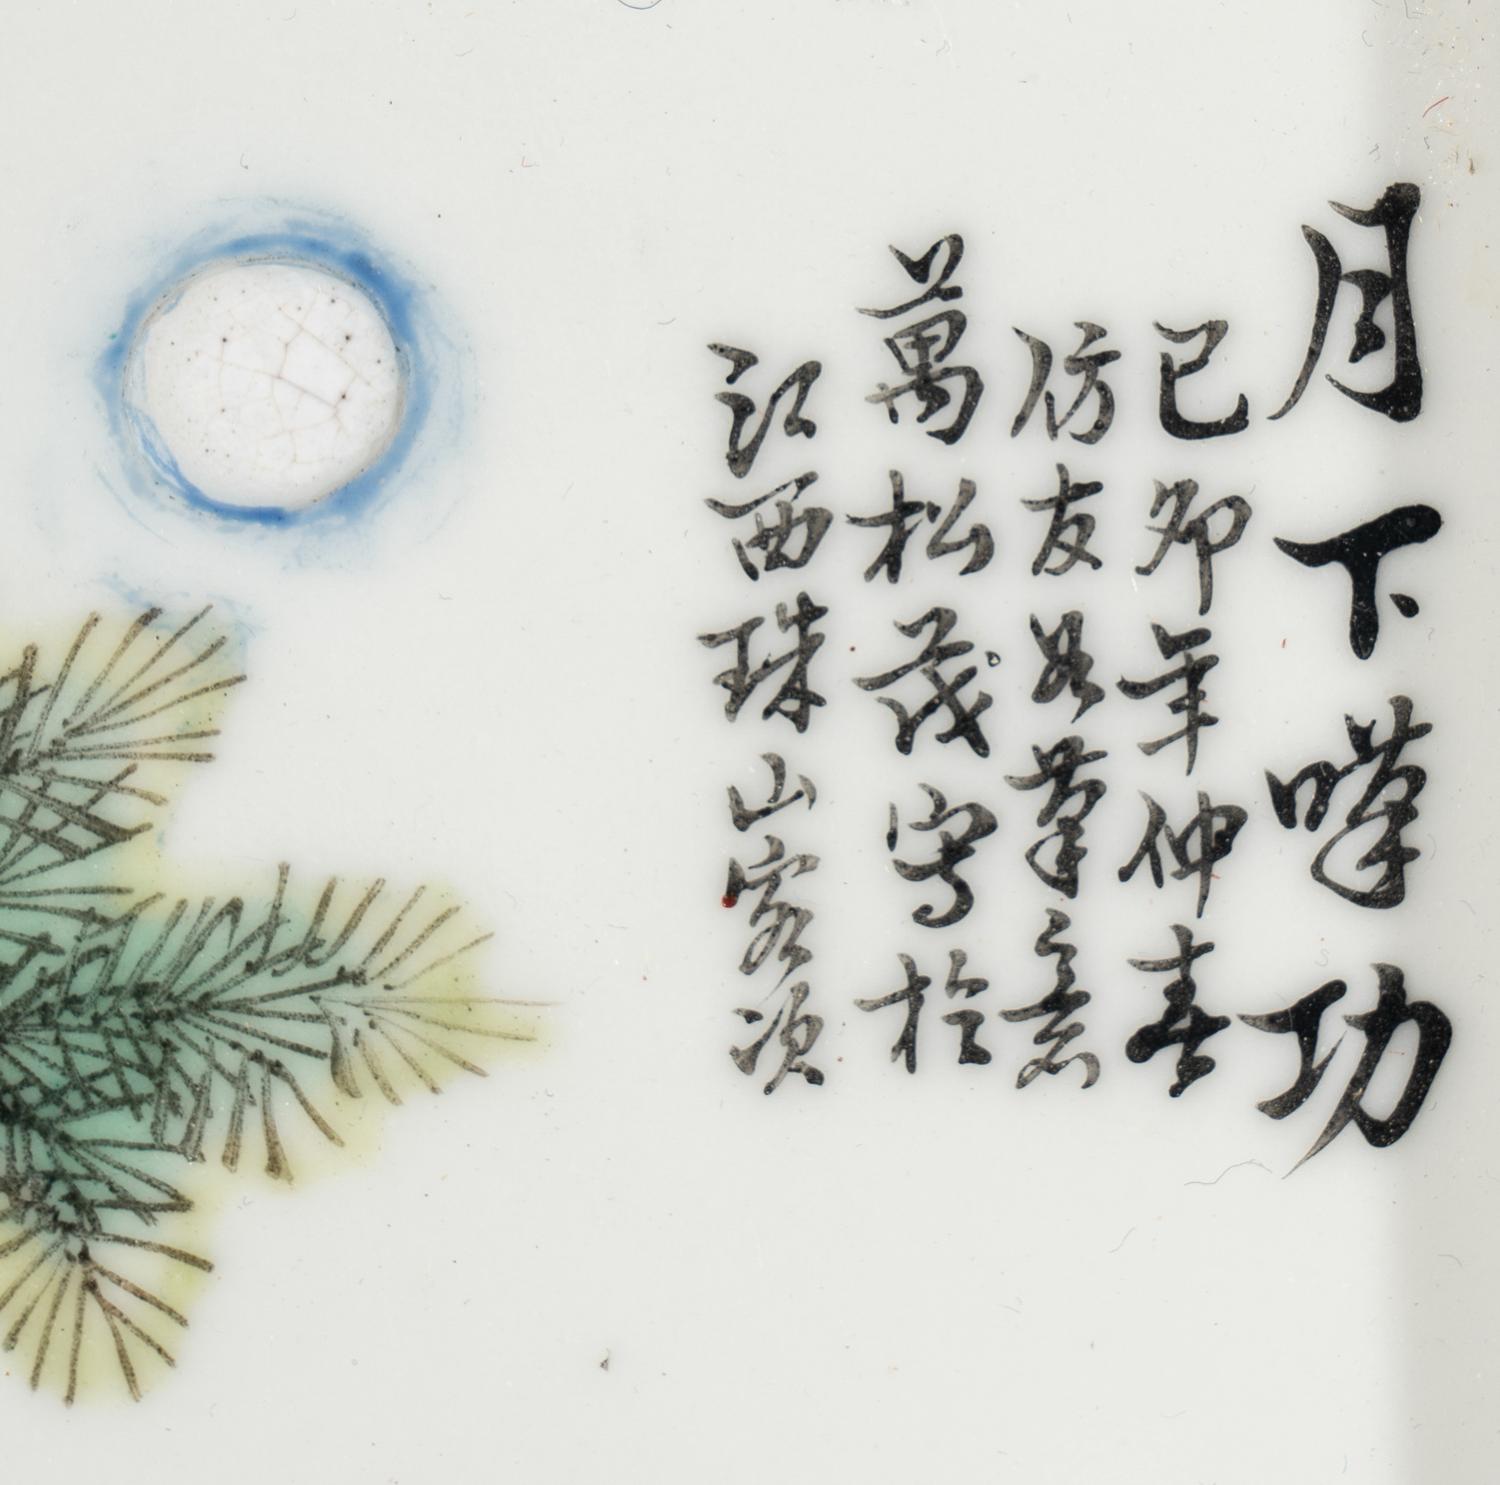 月下嘆功
己卯年仲春
仿友筆意
萬松茂寫於
江西珠山客次